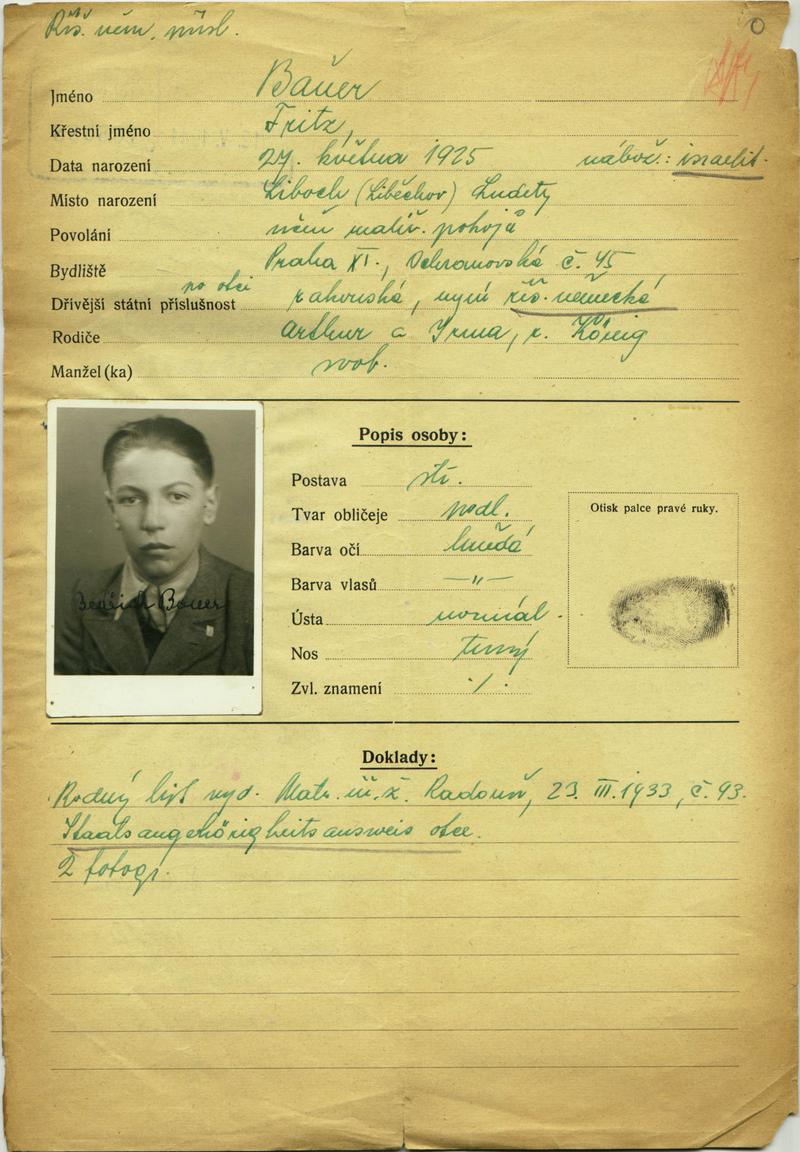 Říš. něm. přísl.
Jméno Bauer
Křestní jméno Fritz,
Data narození 27. května 1925 nábož.: israelit.
Místo narození Liboch (Liběchov) Sudety
Povolání učeň malíř. pokojů
Bydliště Praha XI., Ochranovská č. 45
po otci
Dřívější státní příslušnost rakouská, nyní říš. německá
Rodiče Arthur a Irma, r. König
Manžel (ka) svob.
Popis osoby:
Postava stř.
Tvar obličeje podl.
Barva očí hnědá
Barva vlasů —"—
Ústa normál.
Nos
Zvl. znamení ·/·
Otisk palce pravé ruky.
Bedřich Bauer
Doklady:
Rodný list vyd. Matr. ú. ž. Radouň, 23. III. 1933, č. 93.
Staatsangehörigkeitsausweis otce.
2 fotogr.